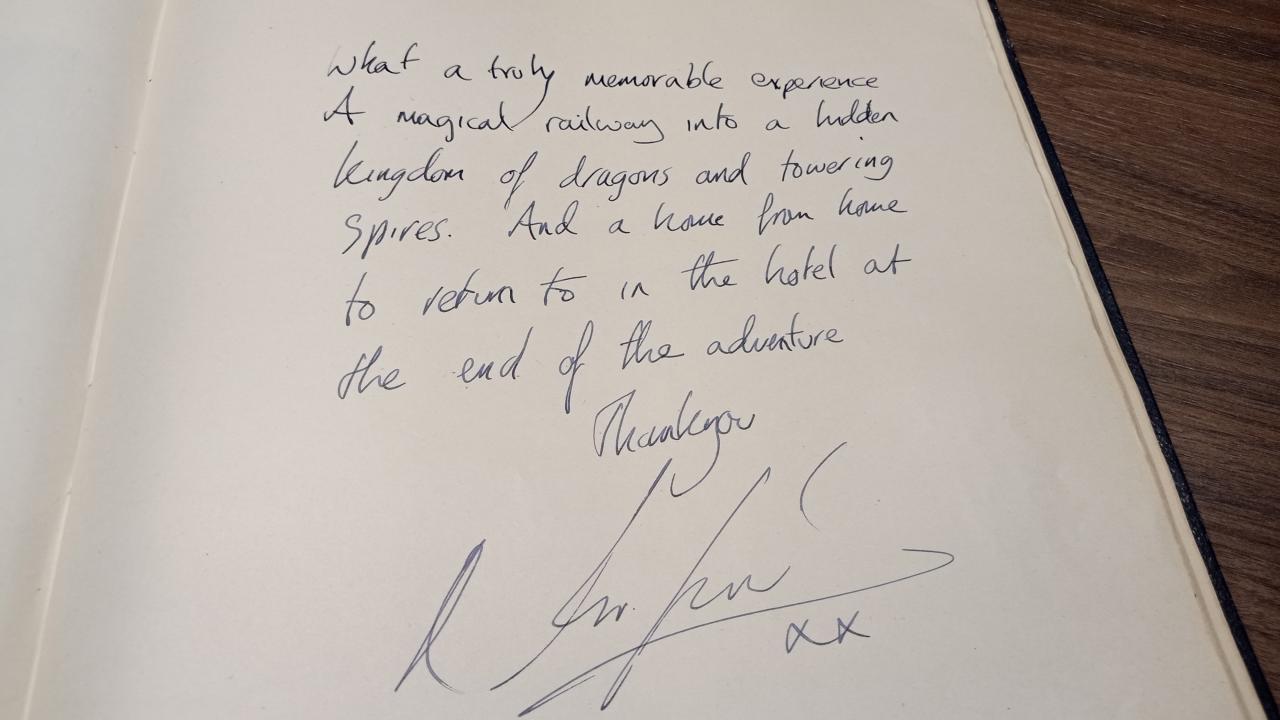 What a truly memorable experience
A magical railway into a hidden
kingdom of dragons and towering
spires. And a home from home
to return to in the hotel at
the end of the adventure
Thankyou
xx